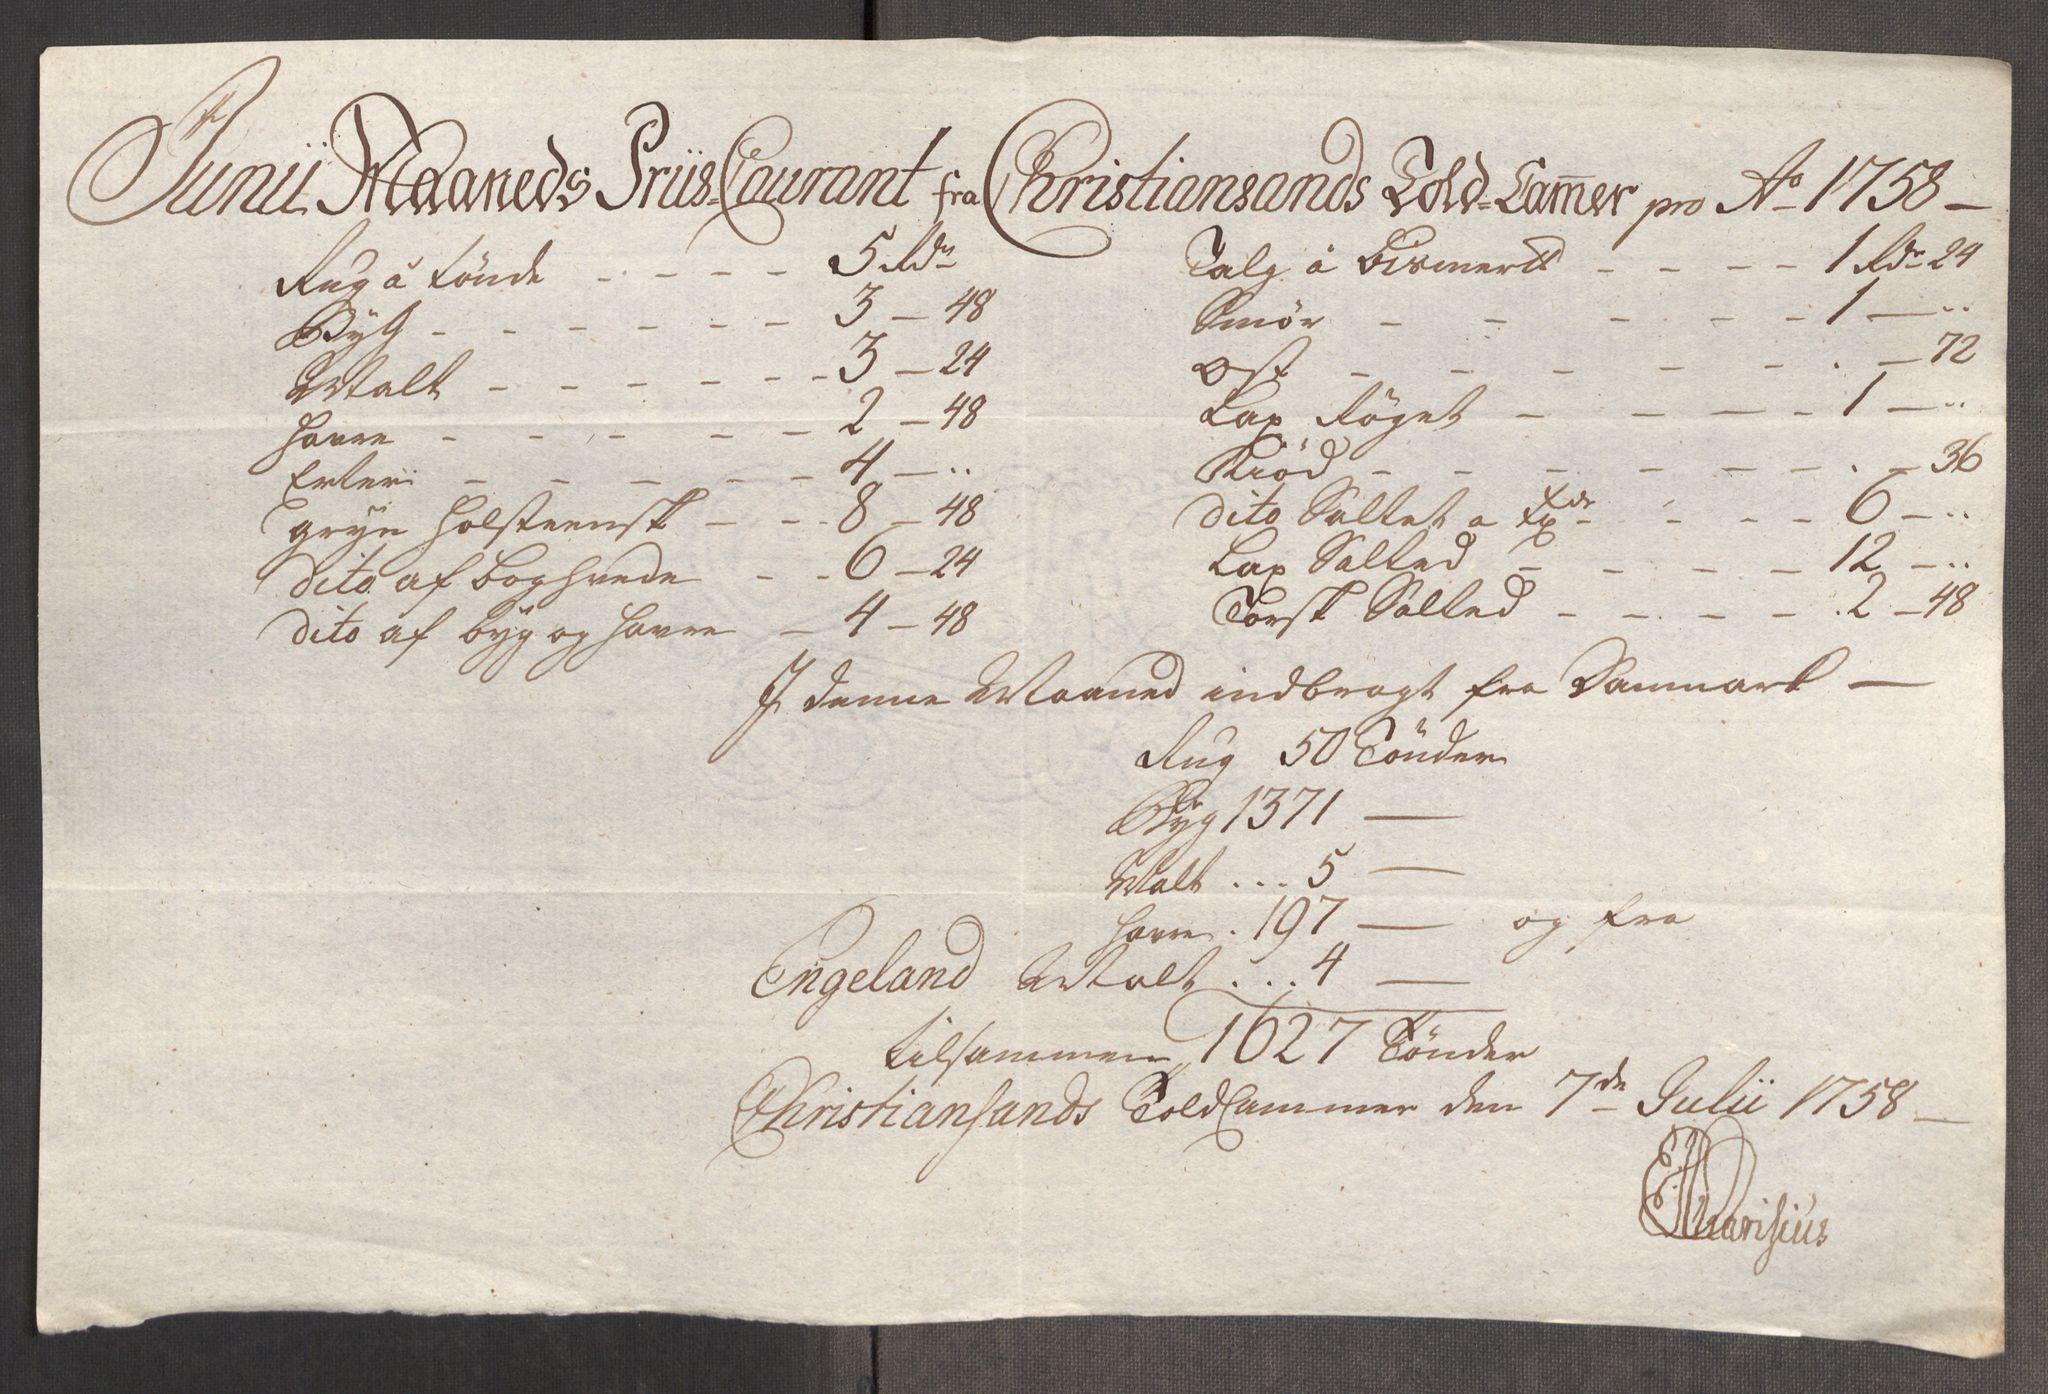 Junii Maaneds Priis=Courant fra Christiansands Told=Cam̅er pro Ao 1758 —
Rug â tönde - - - - 5 Rdr
Byg - - - - - - - 3 - 48
Malt - - - - - - - 3 - 24
Havre - - - - - - 2 - 48
Erter - - - - - - 4 - ..
gryn Holsteensk - - - 8 - 48
dito af Boghvede - - 6 - 24
dito af byg og Havre - 4 - 48
Talg â Bismer℔ - - - - 1 Rdr 24
Smör - - - - - 1 - ..
Ost - - - - - - . - 72
Lax Röget - - - - 1 - ..
Kiöd - - - - - - . - 36
dito Saltet a - - - - 6 - ..
Lax Salted - - - - - 12 - ..
Torsk Salted - - - - - 2 - 48
I denne Maaned indbragt fra Danmark —
Rug 50 Tönder
Byg 1371 —
Malt ... 5 —
Havre . 197 — og fra
Engeland Malt ... 4 —
tilsammen 1627 Tönder
Christiansands ToldCammer den 7de Julii 1758 —